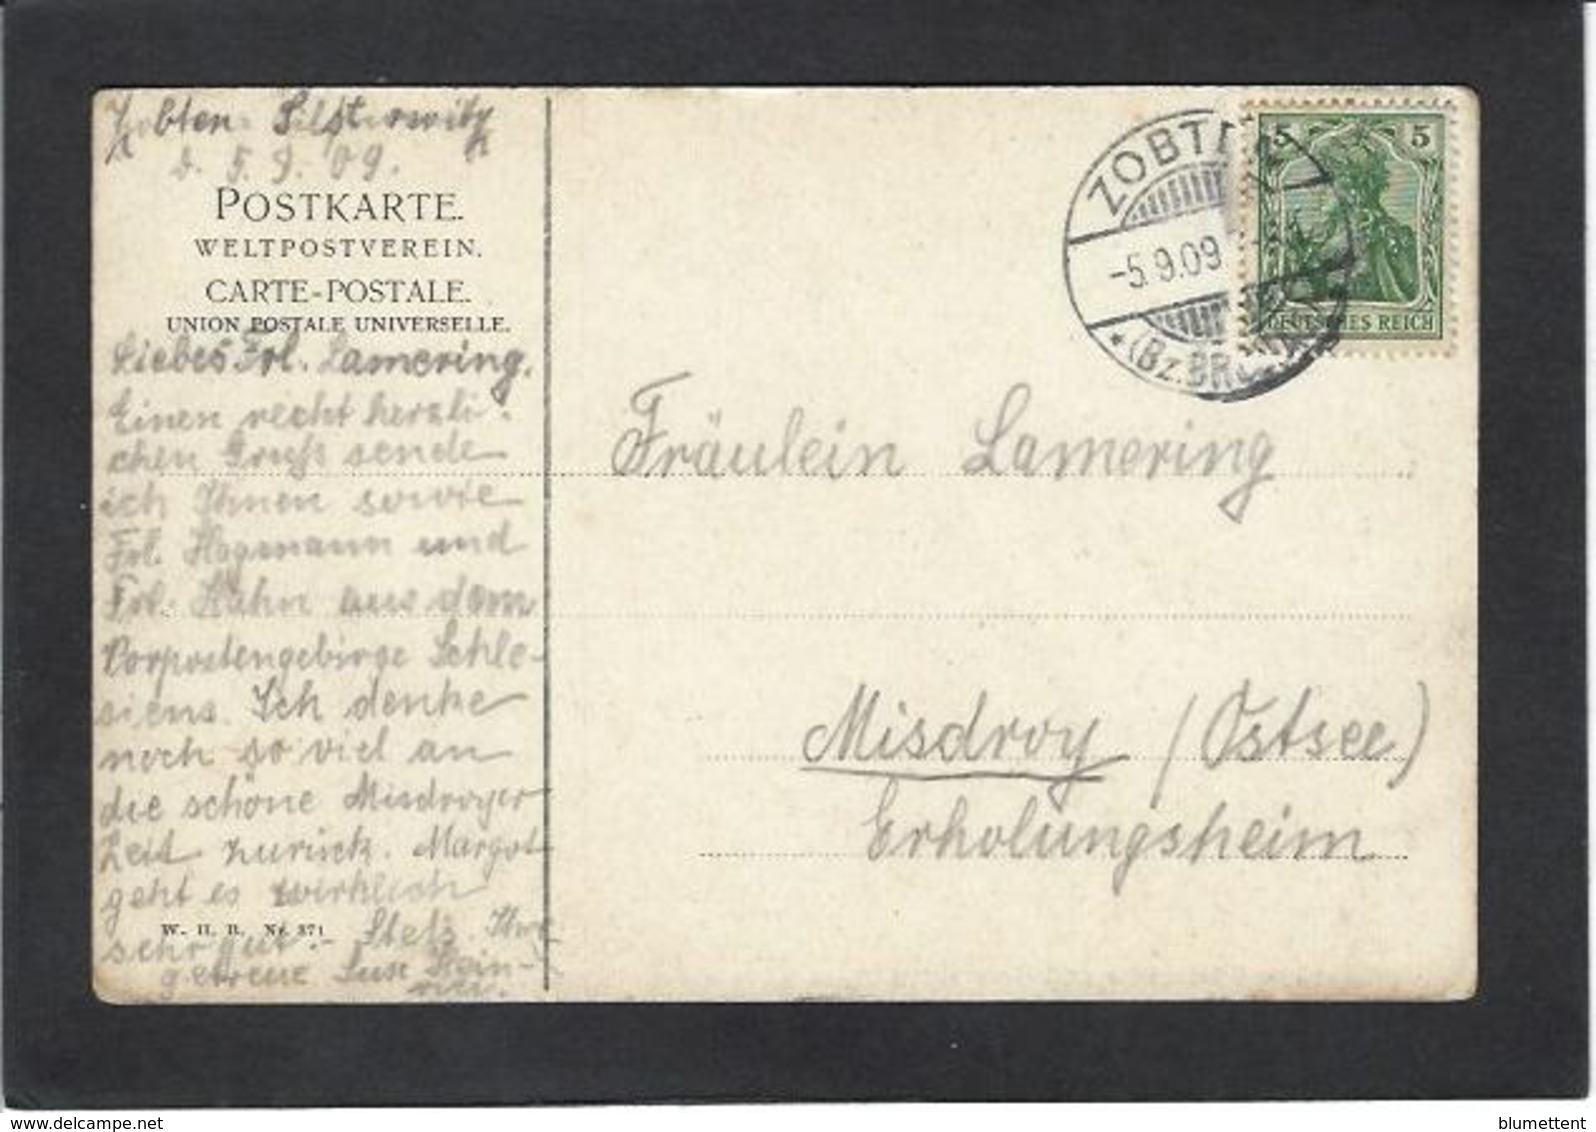 Zobten
d. 5.9.09.
POSTKARTE.
WELTPOSTVEREIN.
CARTE-POSTALE.
UNION POSTALE UNIVERSELLE.
Liebes Frl. Lamering.
Einen recht herzli-
chen Gruß sende
ich Ihnen sowie
Frl. Hagemann und
Frl. Hahn aus dem
Vorpostengebirge Schle-
siens. Ich denke
noch so viel an
die schöne Misdroyer
Zeit zurück. Margot
geht es wirklich
sehr gut. - Stets Ihre
getreue Suse
W. H. B. Nr. 371
ZOBTEN
-5.9.09
★(Bz. BRESLAU)
5 5
DEUTSCHES REICH
Fräulein Lamering
Misdroy (Ostsee)
Erholungsheim
blumettent